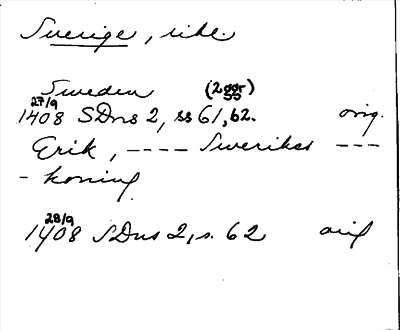 Sverige, rike.
Sweden (2 ggr)
27/9
1408 SDns 2, ss 61, 62. orig.
Erik, ---- Sweriks ---
- koning
28/9
1408 SDns 2, s. 62 orig